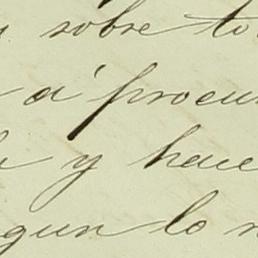 sobre to
á procur
y hace
gun lo